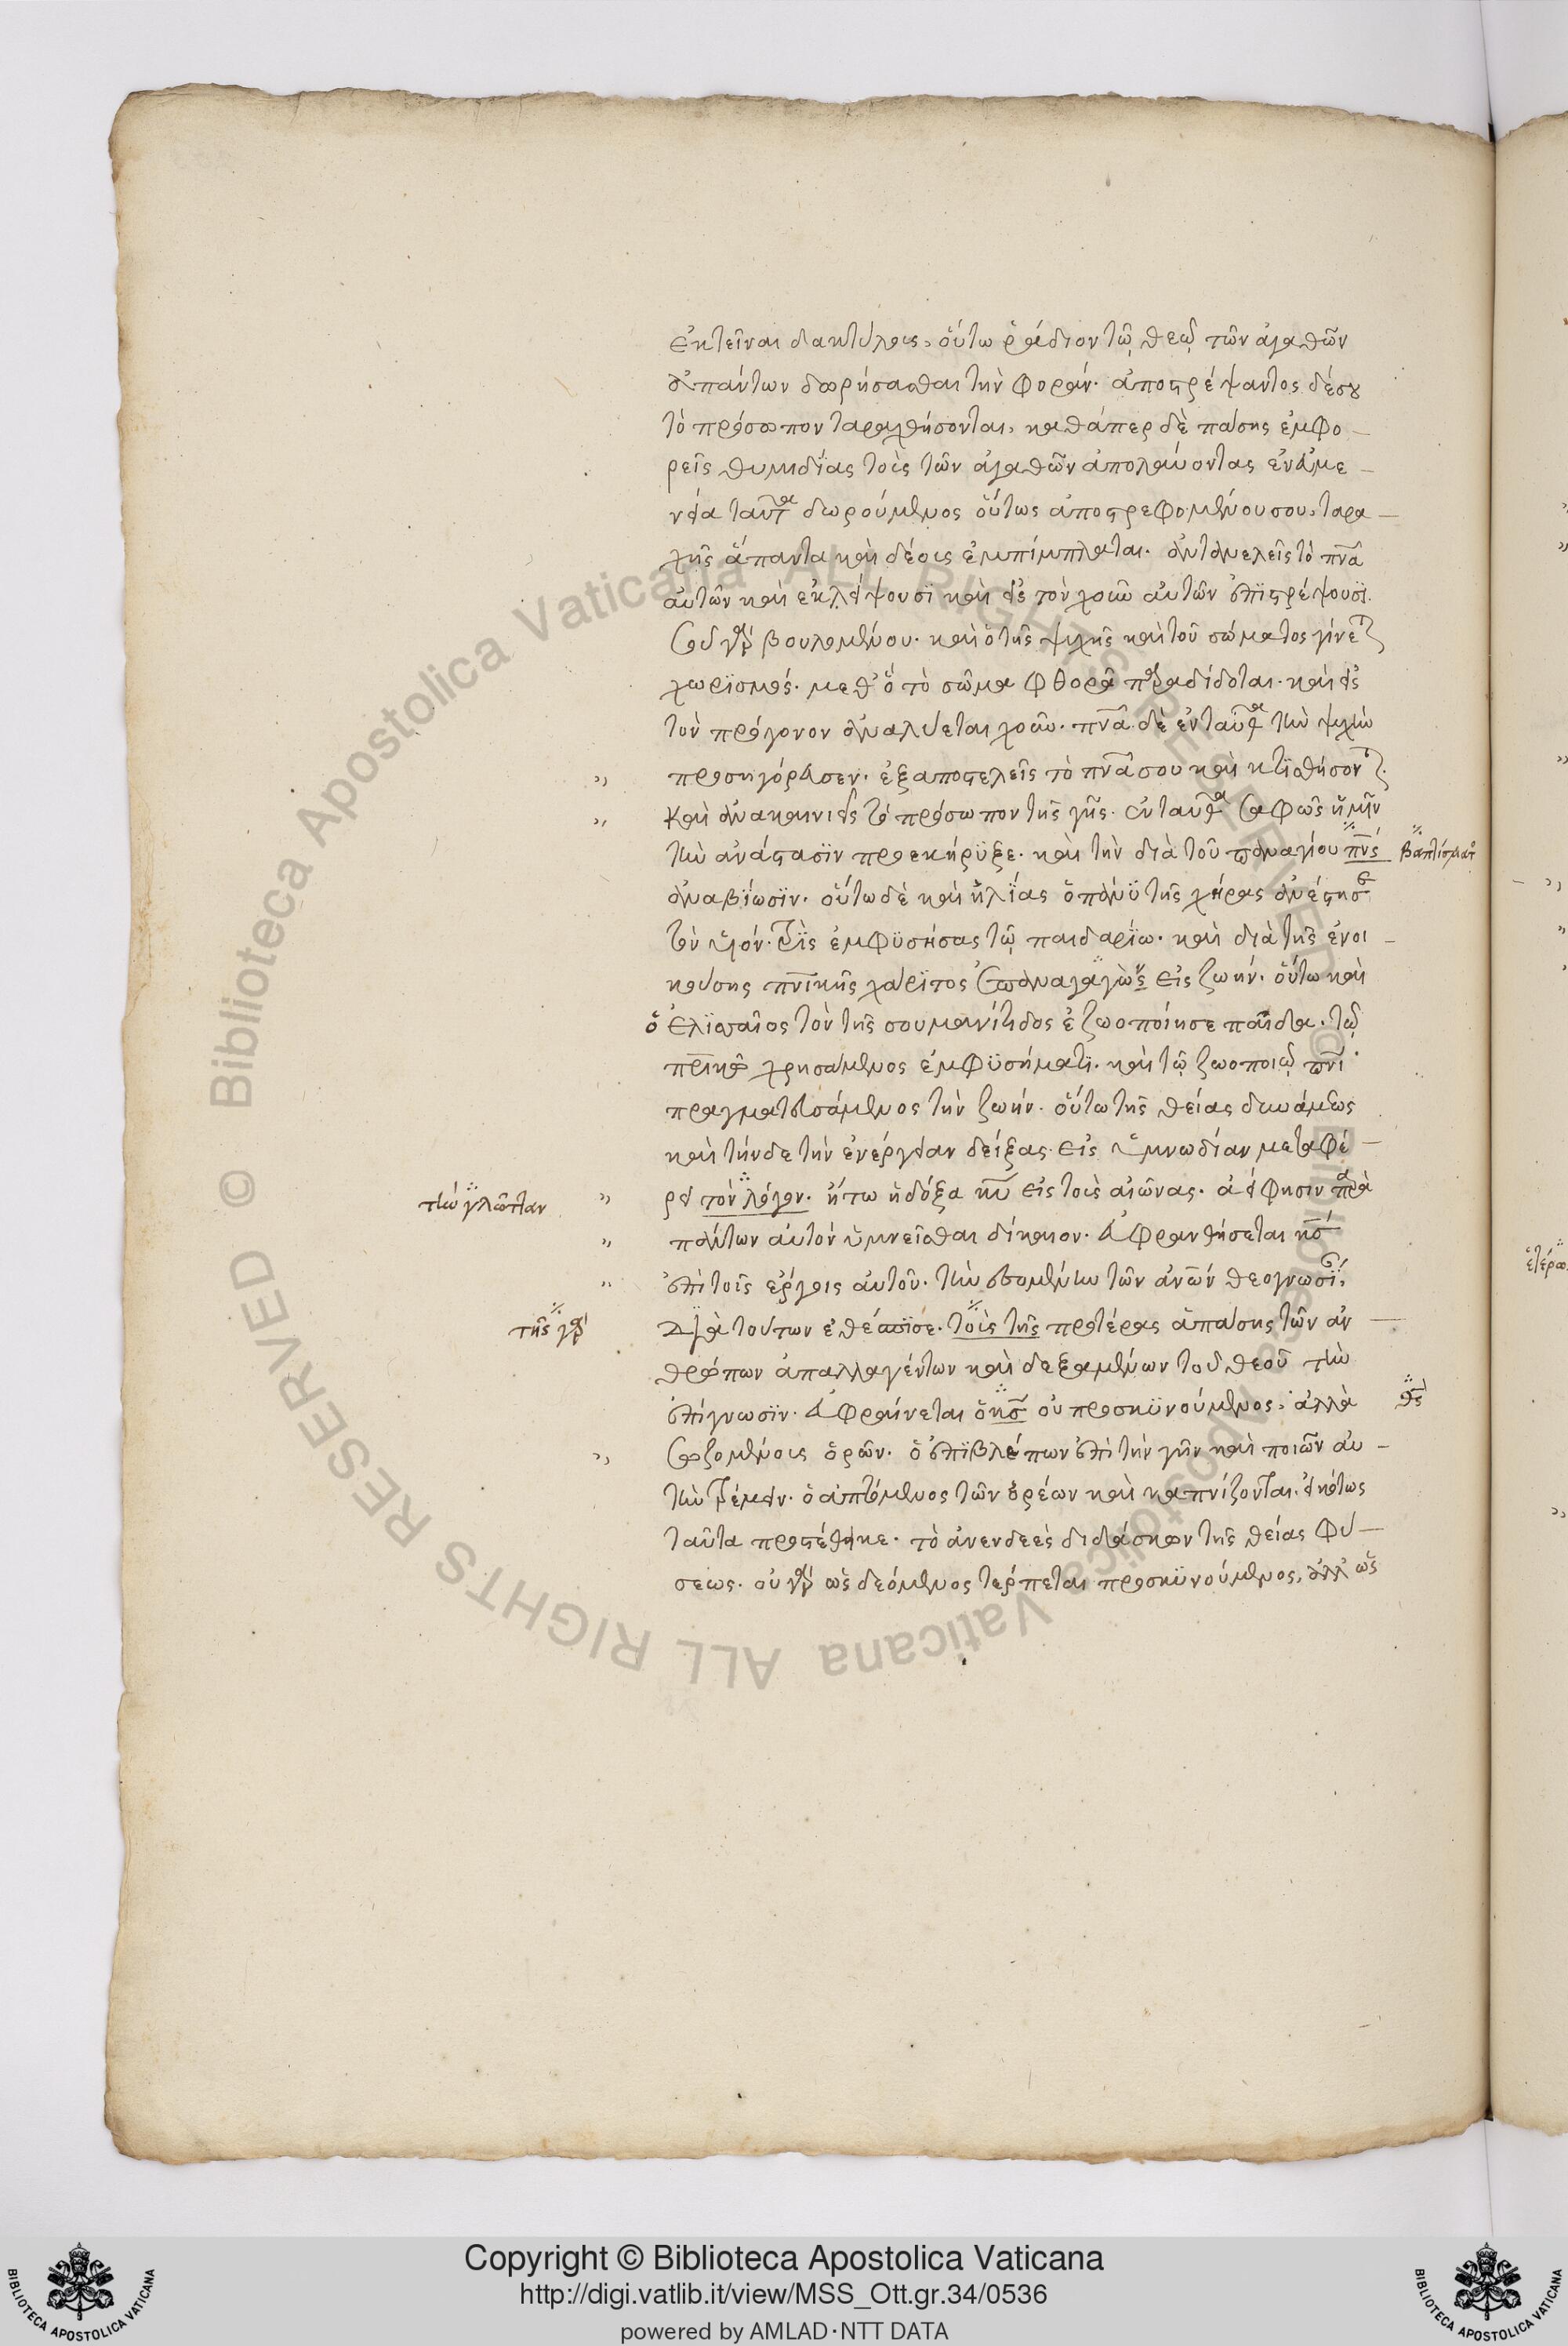 ἐκτεῖναι δακτύλους, οὕτω ῥάδιον τῶ θεῶ τῶν ἀγαθῶν
ἁπάντων δωρήσασθαι τὴν φοράν. ἀποστρέψαντος δέ σου
τὸ πρόσωπον ταραχθήσονται, καθάπερ δὲ πάσης ἐμφο–
ρεῖς θυμηδΐας τοὺς τῶν ἀγαθῶν ἀπολαύοντας εὐμε–
νεία ταῦτα δωρούμενος οὕτως ἀποστρεφομένου σου, ταρα–
χῆς ἅπαντα καὶ δέους ἐμπίμπλαται. ἀντανελεῖς τὸ πνα
αὐτῶν καὶ ἐκλείψουσϊ καὶ εἰς τὸν χοῦν αὐτῶν ἐπϊστρέψουσϊ.
σοῦ γὰρ βουλομένου. καὶ ὁ τῆς ψυχῆς καὶ τοῦ σώματος γίνεται
χωρϊσμός. μεθ' ὃ τὸ σῶμα φθορᾶ παραδίδοται. καὶ εἰς
τὸν πρόγονον ἀναλύεται χοῦν. πνα δὲ ἐνταῦθα τὴν ψυχὴν
" προσηγόρευσεν. ἐξαποστελεῖς τὸ πνα σου καὶ κτϊσθήσονται.
" Καὶ ἀνακαινιεῖς τὸ πρόσωπον τῆς γῆς. ἐνταῦθα σαφῶς ἡμῖν
τὴν ἀνάστασϊν προεκήρϋξε. καὶ τὴν διὰ τοῦ παναγίου πνς βαπτίσματ
ἀναβΐωσϊν. οὕτω δὲ καὶ ἠλΐας ὁ πάνϋ τῆς χήρας ἀνέστησε
τὸν υἱόν. τρὶς ἐμφϋσήσας τῶ παιδαρΐω. καὶ διὰ τῆς ἐνοι–
κούσης πνικῆς χάρϊτος ἐπαναγαγὼν εἰς ζωήν. οὕτω καὶ
ὁ ἐλϊσσαῖος τὸν τῆς σουμανίτιδος ἐζωοποίησε παῖδα. τῶ
πνικῶ χρησάμενος ἐμφϋσήματϊ. καὶ τῶ ζωοποιῶ πνι
πραγματευσάμενος τὴν ζωήν. οὕτω τῆς θείας δυνάμεως
καὶ τήνδε τὴν ἐνέργειαν δείξας. εἰς ὑμνωδίαν μεταφέ–
τὴν γλῶτταν " ρει τὸν λόγον. ἤτω ἡ δόξα κυ εἰς τοὺς αἰῶνας. ἀεί φησιν παρὰ
" πάντων αὐτὸν ὑμνεῖσθαι δίκαιον. εὐφρανθήσεται κς
" ἐπὶ τοῖς ἔργοις αὐτοῦ. τὴν ἐσομένην τῶν ἀνων θεογνωσΐαν
τῆς γὰρ διὰ τούτων ἐθέσπϊσε. τοὺς τῆς προτέρας ἁπάσης τῶν ἀν–
θρώπων ἀπαλλαγέντων καὶ δεξαμένων τοῦ θεοῦ τὴν
ἐπίγνωσϊν. εὐφραίνεται ὁ κς οὐ προσκϋνούμενος, ἀλλὰ θς
" σωζομένους ὁρῶν. ὁ ἐπϊβλέπων ἐπὶ τὴν γῆν καὶ ποιῶν αὐ–
τὴν τρέμειν. ὁ ἁπτόμενος τῶν ὀρέων καὶ καπνίζονται. εἰκότως
ταῦτα προστέθηκε. τὸ ἀνενδεὲς διδάσκων τῆς θείας φύ–
σεως. οὐ γὰρ ὡς δεόμενος τέρπεται προσκϋνούμενος, ἀλλ' ὡς
ἑτέρω
Copyright © Biblioteca Apostolica Vaticana
http://digi.vatlib.it/view/MSS_Ott.gr.34/0536
powered by AMLAD·NTT DATA
BIBLIOTECA APOSTOLICA VATICANA
BIBLIOTECA APOSTOLICA VATICANA
© Biblioteca Apostolica Vaticana ALL RIGHTS RESERVED © Biblioteca Apostolica Vaticana ALL RIGHTS RESERVED